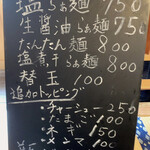 塩らぁ麺 750
生醤油らぁ麺 750
たんたん麺 800
塩煮干らぁ麺 800
替玉 100
追加トッピング
・チャーシュー 250
・たまご 100
・ネギ 150
・メンマ 100